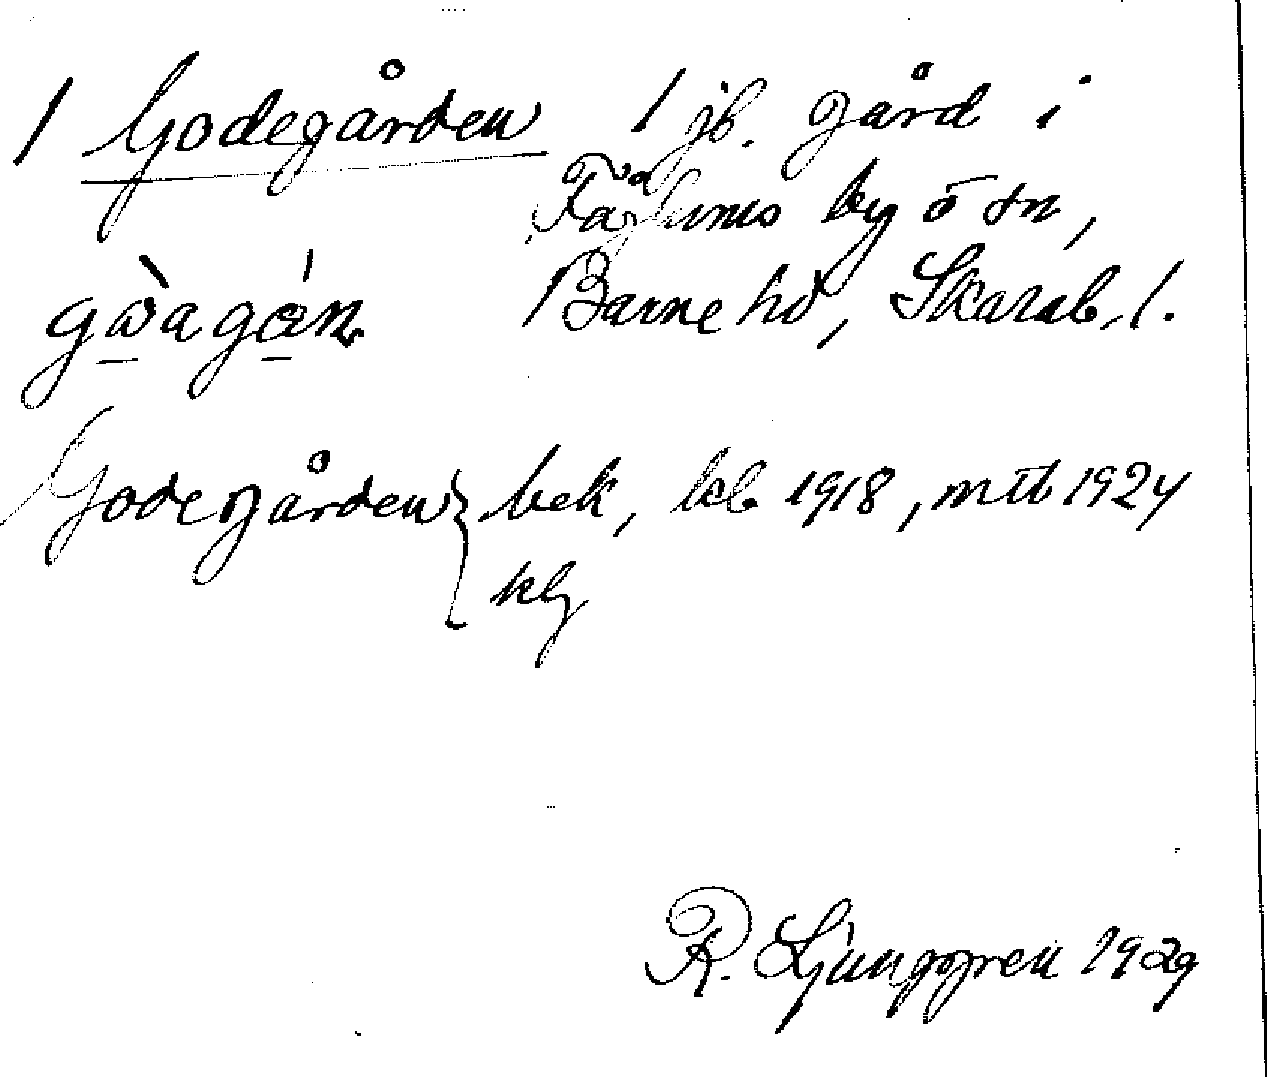 1 Godegården 1 jb. gård i
Fåglums by o sn,
Barne hd, Skarab. l.
Godegården } bek, kb 1918, mtl 1924
R. Ljunggren 1929